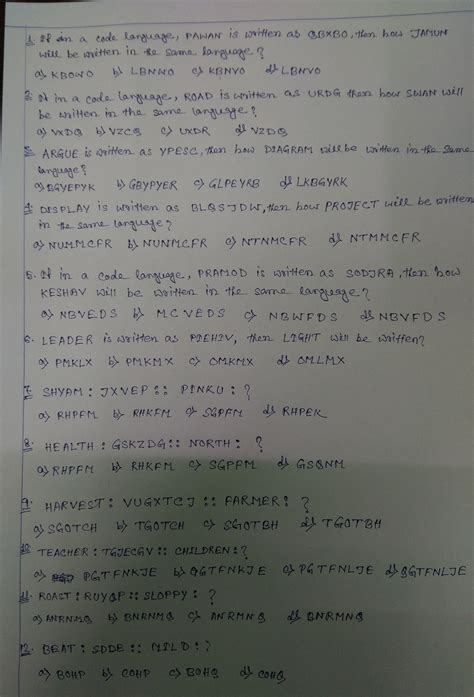 1. If in a code language, PAWAN is written as QBXBO, then how JAMUN
will be written in the same language?
a) KBOWO b) LBNWO c) KBNVO d) LBNVO
2. If in a code language, ROAD is written as URDG then how SWAN will
be written in the same language?
a) VXDQ b) VZCQ c) UXDR d) VZDQ
3. ARGUE is written as YPESC, then how DIAGRAM will be written in the same
language?
a) BGYEPYK b) GBYPYER c) GLPEYRB d) LKBGYRK
4. DISPLAY is written as BLQSJDW, then how PROJECT will be written
in the same language?
a) NUMMCFR b) NUNMCFR c) NTNMCFR d) NTMMCFR
5. If in a code language, PRAMOD is written as SODJRA, then how
KESHAV will be written in the same language?
a) NBVEDS b) MCVEDS c) NBWFDS d) NBVFDS
6. LEADER is written as PIEHIV, then LIGHT will be written?
a) PMKLX b) PMKMX c) OMKMX d) OMLMX
7. SHYAM : JXVEP :: PINKU : ?
a) RHPFM b) RHKFM c) SGPFM d) RHPEK
8. HEALTH : GSKZDG :: NORTH : ?
a) RHPFM b) RHKFM c) SGPFM d) GSQNM
9. HARVEST : VUGXTCJ :: FARMER : ?
a) SGOTCH b) TGOTCH c) SGOTBH d) TGOTBH
10. TEACHER : TGJECGV :: CHILDREN : ?
a) PGTFNKJE b) QGTFNKJE c) PGTFNLJE d) QGTFNLJE
11. ROAST : RUYQP :: SLOPPY : ?
a) ANRNMQ b) BNRNMQ c) ANRMNQ d) BNRMNQ
12. BEAT : SDDE :: MILD : ?
a) BOHP b) COHP c) BOHQ d) COHQ